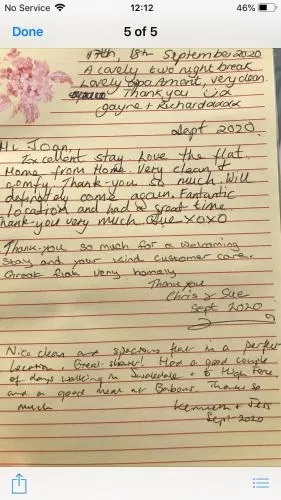 No Service 12:12 46%
Done 5 of 5
17th, 18th September 2020
A lovely two night break
Lovely apartment, very clean.
Thank you
Gayne + Richard xxxx
Sept 2020.
Hi Joan,
Excellent stay. Love the flat.
Home from Home. Very clean &
comfy. Thank-you so much. Will
definitely come again. Fantastic
location and had a great time
Thank-you very much. XOXO
Thank-you so much for a welcoming
stay and your kind customer care.
Great flat very homely
Thank you
Chris & Sue
Sept 2020
Nice clean and spacious flat in a perfect
location. Great shower! Had a good couple
of days walking in Swaledale + to High Force
and a good meal at Thanks so
much
Kenneth + Jess
Sept 2020